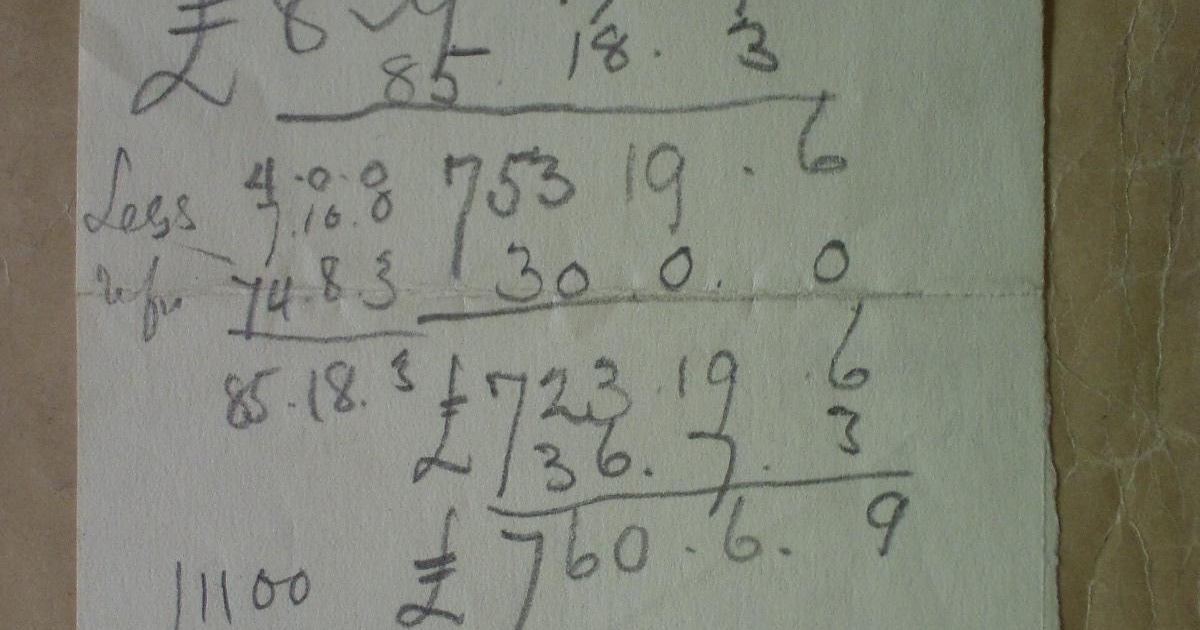 £ 8
85 18. 3
Less 4.0.0 753 19.6
7.10.0
74.8.3 30.0.0
85.18.3 £723.19.6
36.7.3
11100 £760.6.9